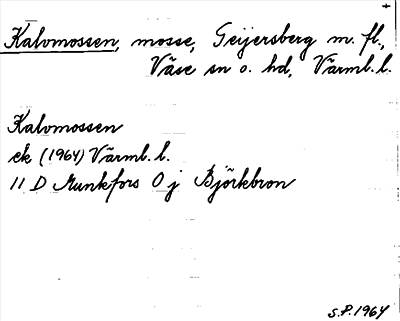 Kalvmossen, mosse, Geijersberg m. fl.,
Väse sn o. hd, Värml. l.
Kalvmossen
ek (1964) Värml. l.
11 D Munkfors 0 j Björkbron
S.P. 1964